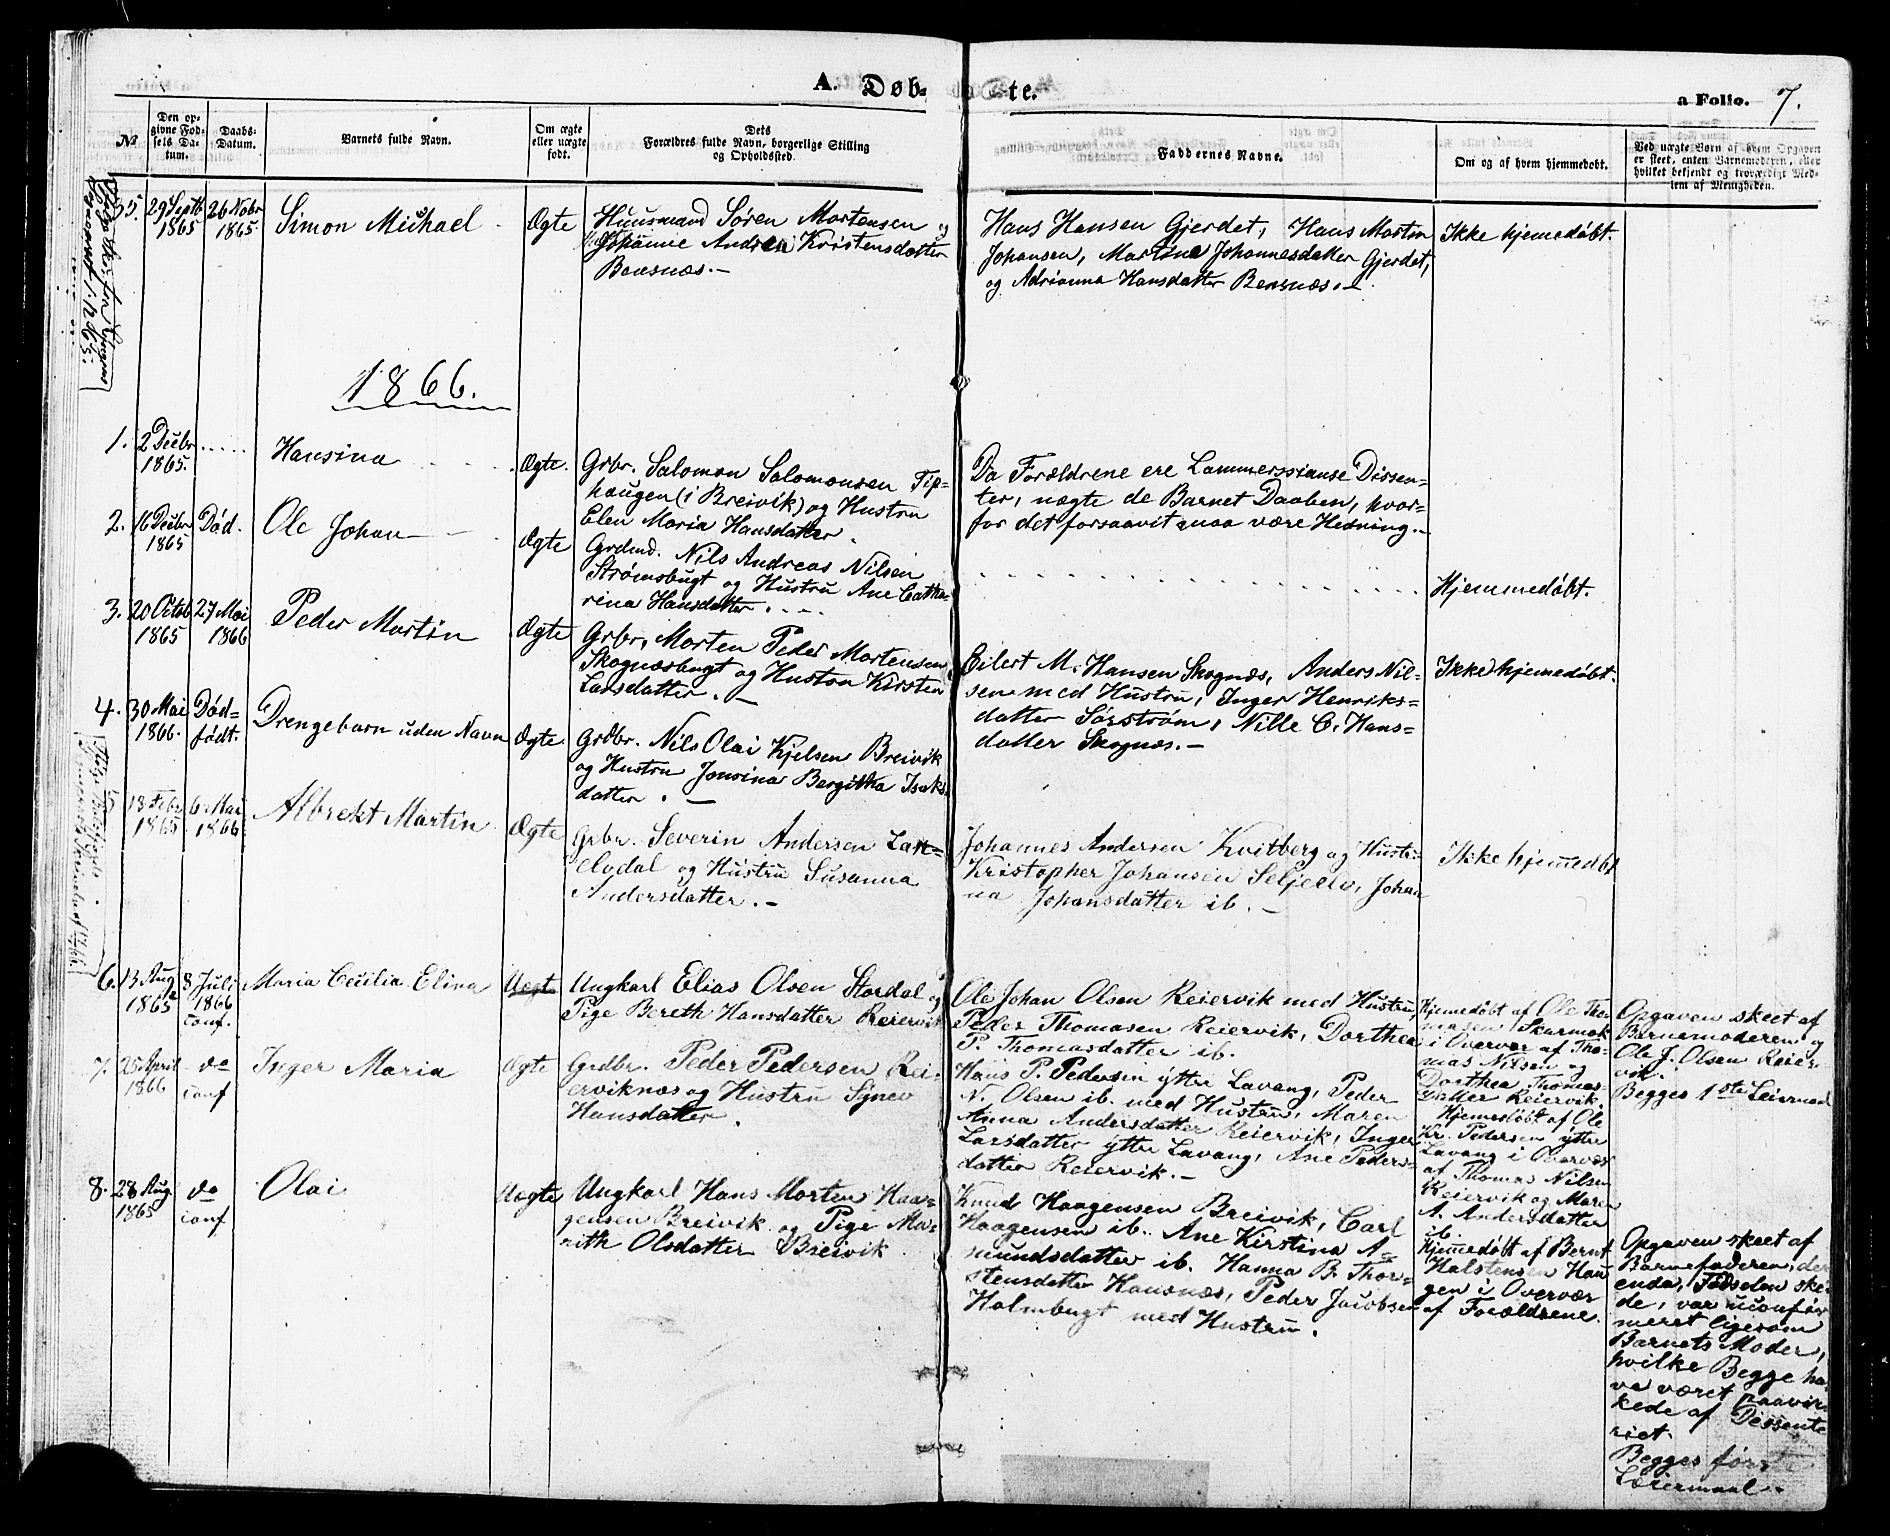 A. Døb- te.
a Folio. 7.
№
Den opgivne Fødsels Datum.
Daabs-Datum.
Barnets fulde Navn.
Om ægte eller uægte født.
Dets Forældres fulde Navn, borgerlige Stilling og Opholdssted.
Faddernes Navne.
Om og af hvem hjemmedøbt.
Ved uægte Børn af hvem Opgaven er skeet, enten Barnemoderen, eller hvilket bekjendt og troværdigt Medlem af Menigheden.
35. 29 Septb 1865 26 Nobr 1865. Simon Michael Ægte
Huusmand Søren Mortensen og
Johanne Andrea Kristensdatter
Bensnæs.-
Hans Hansen Gjerdet, Hans Martin
Johansen, Martina Johannesdatter Gjerdet,
og Adrianna Hansdatter Bensnæs.-
Ikke hjemedøbt.
1866.
1. 2 Decbr 1865. Hansina Ægte.
Grbr. Salomon Salomonsen Tip-
haugen (i Breivik) og Hustru
Elen Maria Hansdatter.
Da Forældrene ere Lammerssianse Dissen-
ter, nægte de Barnet Daaben, hvor-
for det forsaavit maa være Hedning.-
2. 16 Decbr 1865 Død. Ole Johan Ægte
Grdmd. Nils Andreas Nilsen
Strømsbugt og Hustru Ane Catha-
rina Hansdatter.
Hjemmedøbt.
3. 20 Octob 1865 27 Mai 1866 Peder Martin Ægte
Grbr. Morten Peder Mortensen
Skognæsbugt og Hustru Kirsten
Larsdatter.
Eilert M. Hansen Skognæs, Anders Nil-
sen med Hustru, Inger Henriks-
datter Sørstrøm, Nille C. Hans-
datter Skognæs.-
Ikke hjemedøbt.
4. 30 Mai 1866. Død-født. Drengebarn uden Navn Ægte
Grdbr. Nils Olai Kjelsen Breivik
og Hustru Jonsina Bergitha Isaks-
datter.
5 18 Febr 1865 6 Mai 1866 Albrekt Martin Ægte
Grbr. Severin Andersen Lak-
elvdal og Hustru Susanna
Andersdatter.-
Johannes Andersen Kvitberg og Hustru
Kristopher Johansen Seljeelv, Johan
na Johansdatter ib.-
Ikke hjemedøbt
6. 13 Aug 1865 8 Juli 1866 conf. Maria Cecilia Elina Uægt
Ungkarl Elias Olsen Stordal og
Pige Bereth Hansdatter Reiervik
Ole Johan Olsen Reiervik med Hustru,
Peder Thomasen Reiervik, Dorthea
P. Thomasdatter ib.
Hjemedøbt af Ole Tho-
masen Skarmok
i Overvær af Tho-
mas Nilsen og
Dorthea Thomas-
datter Reiervik.
Opgaven skeet af
Barnemoderen og
Ole J. Olsen Reier-
vik.
Begges 1ste Leiermaal
7. 25 April 1866 do conf Inger Maria Ægte
Grdbr. Peder Pedersen Rei-
erviknæs og Hustru Synev
Hansdatter.
Hans P. Pedersen yttre Lavang, Peder
N. Olsen ib. med Hustru, Maren
Anna Andersdatter Reiervik, Inger
Larsdatter yttre Lavang, Ane Peders-
datter Reiervik.-
Hjemedøbt af Ole
Kr. Pedersen yttre
Lavang i Overvær
af Thomas Nilsen
Reiervik og Maren
A. Andersdatter
ib.
8. 28 Aug. 1865 do conf Olai Uægte
Ungkarl Hans Morten Haa-
gensen Breivik og Pige Ma-
rith Olsdatter Breivik
Knud Haagensen Breivik, Carl
Haagensen ib. Ane Kirstina A-
mundsdatter ib. Hanna B. Thor-
stensdatter Hansnæs, Peder Jacobsen
Holmbugt med Hustru.
Hjemedøbt af Bernt
Halstensen Hau
gen i Overvær
af Forældrene.
Opgaven skeet af
Barnefaderen, der
enda, Fødselen ske-
de, var uconfir-
meret ligesom
Barnets Moder,
hvilke Begge ha-
ve været paavir-
kede af Dissente
riet.
Begges første
Leiermaal.